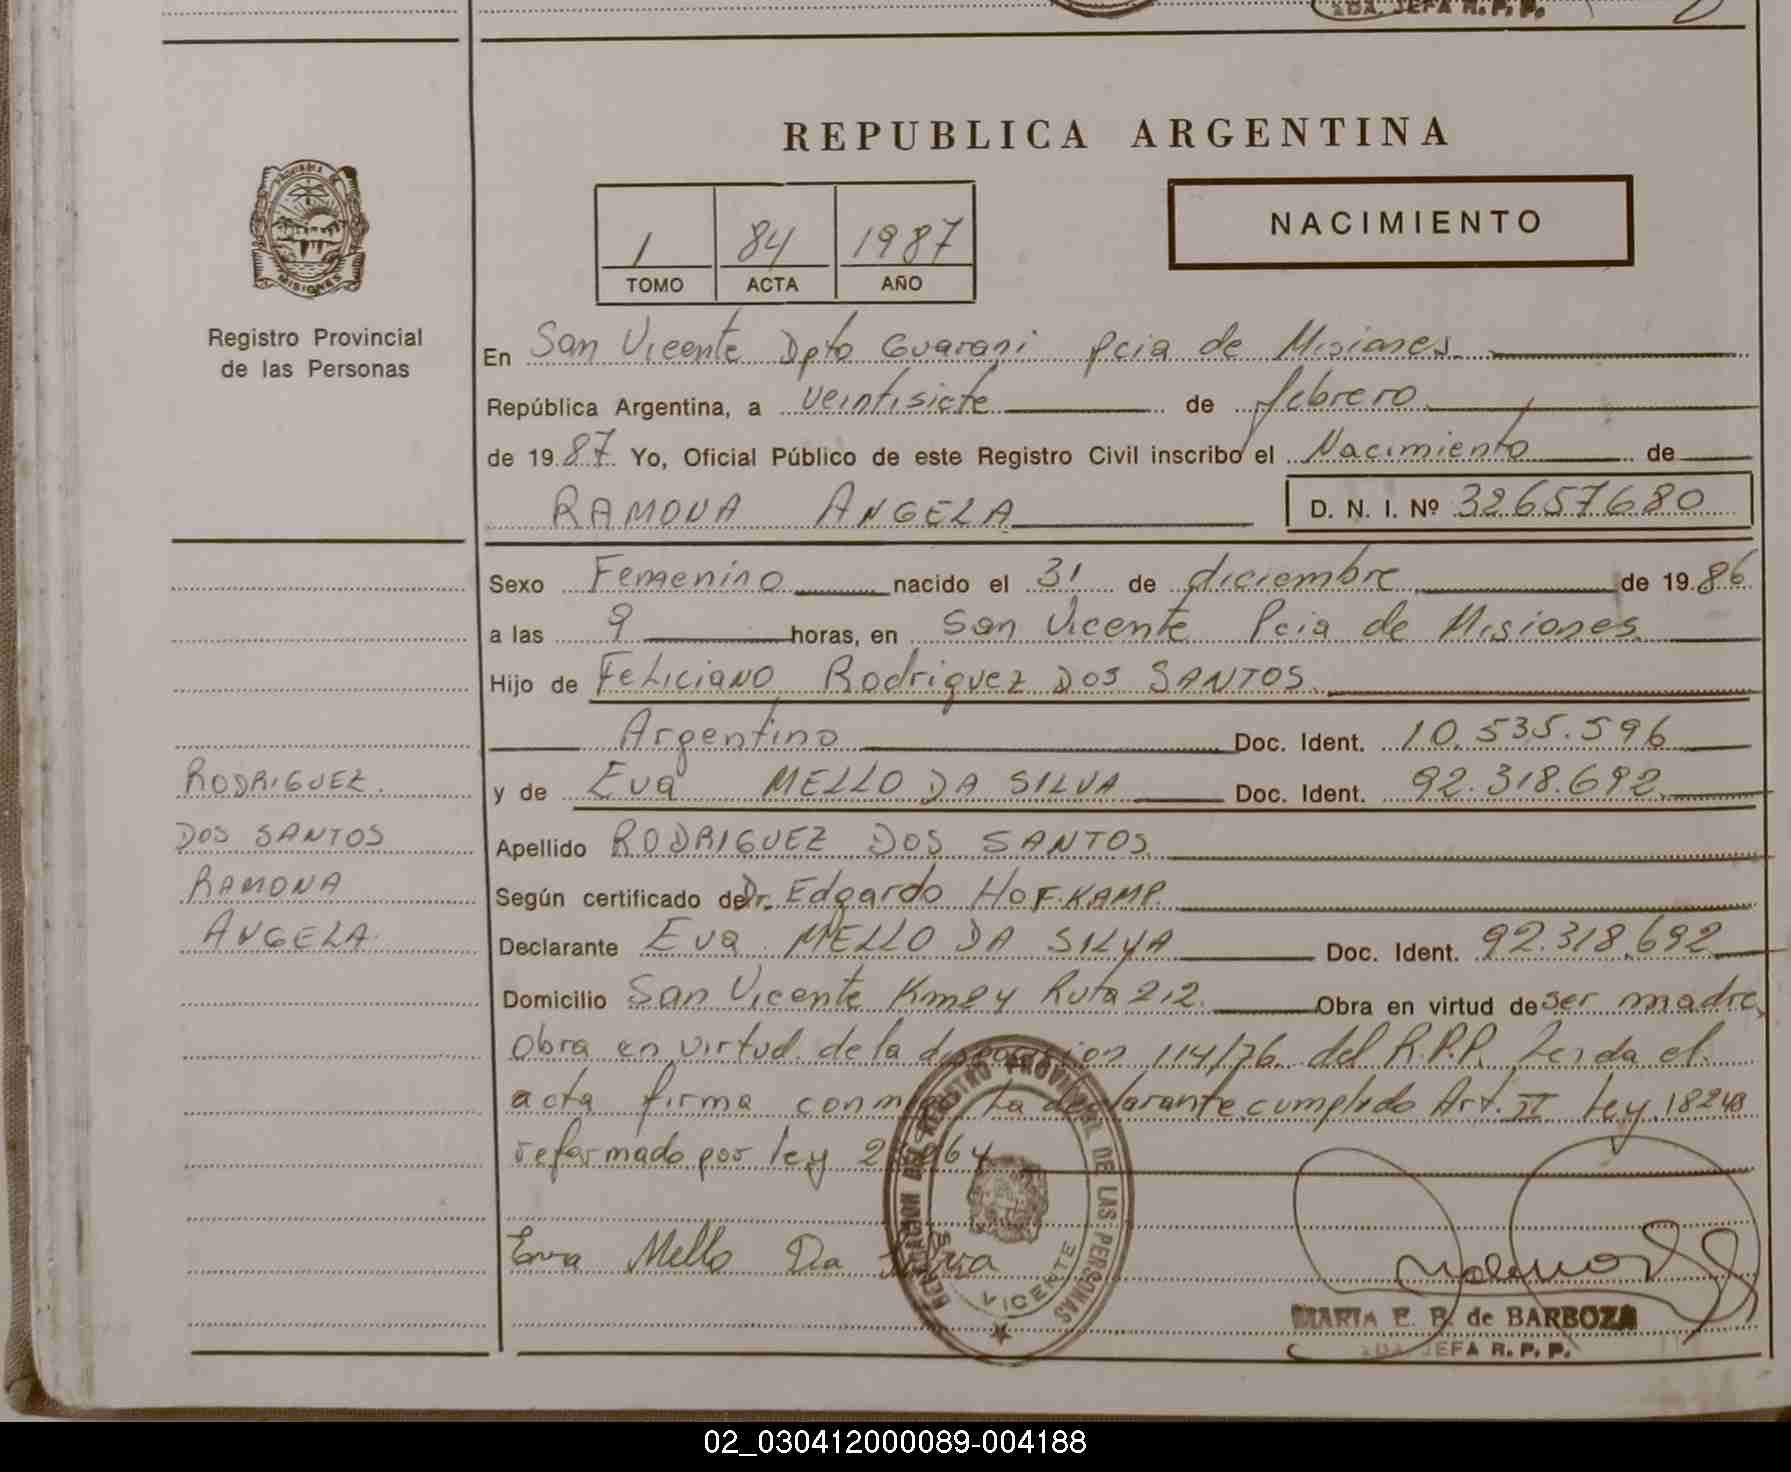 2DA. JEFA R. P. P.
REPUBLICA ARGENTINA
NACIMIENTO
1 84 1987
TOMO ACTA AÑO
MISIONES
Registro Provincial
de las Personas
En San Vicente Dpto Guarani Pcia de Misiones
República Argentina, a veintisiete de febrero
de 1987 Yo, Oficial Público de este Registro Civil inscribo el Nacimiento de
RAMONA ANGELA D. N. I. Nº 32657680
Sexo Femenino nacido el 31 de diciembre de 1986
a las 9 horas, en San Vicente Pcia de Misiones
Hijo de Feliciano Rodriguez DOS SANTOS
Argentino Doc. Ident. 10.535.596
y de Eva MELLO DA SILVA Doc. Ident. 92.318.692
Apellido RODRIGUEZ DOS SANTOS
Según certificado de Dr. Edgardo HOFKAMP
Declarante Eva MELLO DA SILVA Doc. Ident. 92.318.692
Domicilio San Vicente Km 24 Ruta 212 Obra en virtud de ser madre
Obra en virtud de la 114/76 del R.P.P. Leida el
acta firma conmigo La declarante cumplido Art. II Ley 18248
reformado por ley
RODRIGUEZ
DOS SANTOS
RAMONA
ANGELA
Eva Mello Da Silva
REGISTRO PROVINCIAL DE LAS PERSONAS
VICENTE
MARIA E. B. de BARBOZA
2DA. JEFA R. P. P.
02_030412000089-004188